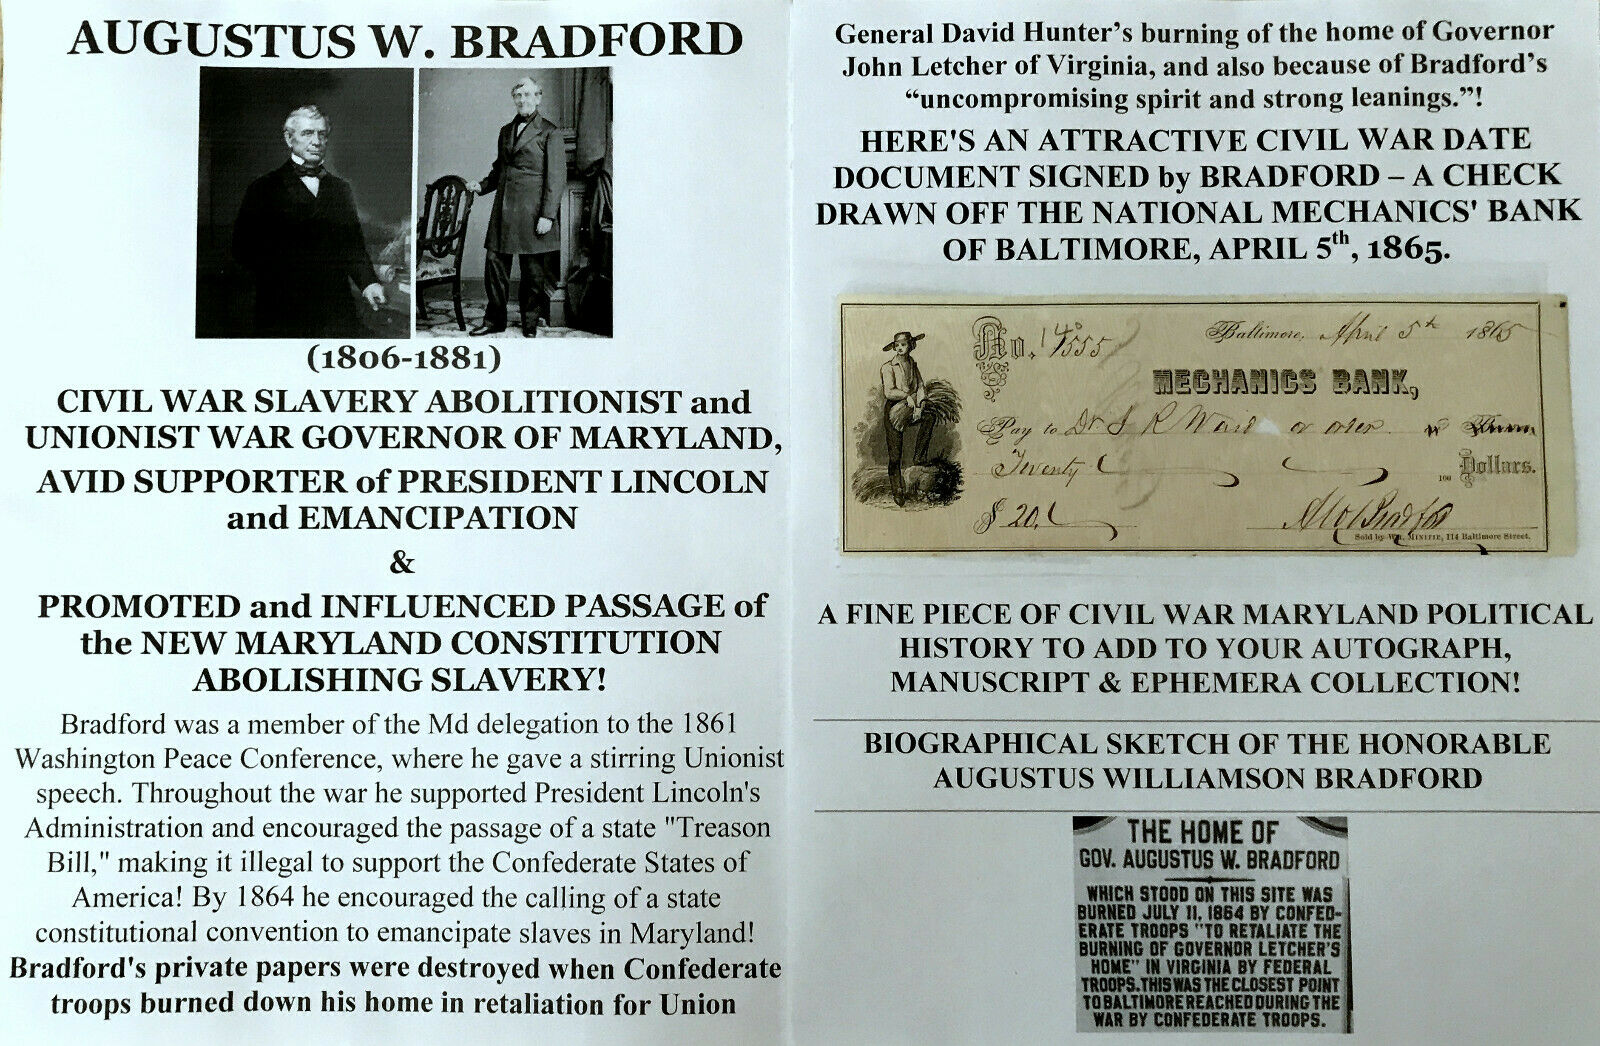 AUGUSTUS W. BRADFORD
(1806-1881)
CIVIL WAR SLAVERY ABOLITIONIST and
UNIONIST WAR GOVERNOR OF MARYLAND,
AVID SUPPORTER of PRESIDENT LINCOLN
and EMANCIPATION
&
PROMOTED and INFLUENCED PASSAGE of
the NEW MARYLAND CONSTITUTION
ABOLISHING SLAVERY!
Bradford was a member of the Md delegation to the 1861
Washington Peace Conference, where he gave a stirring Unionist
speech. Throughout the war he supported President Lincoln's
Administration and encouraged the passage of a state "Treason
Bill," making it illegal to support the Confederate States of
America! By 1864 he encouraged the calling of a state
constitutional convention to emancipate slaves in Maryland!
Bradford's private papers were destroyed when Confederate
troops burned down his home in retaliation for Union
General David Hunter's burning of the home of Governor
John Letcher of Virginia, and also because of Bradford's
"uncompromising spirit and strong leanings."!
HERE'S AN ATTRACTIVE CIVIL WAR DATE
DOCUMENT SIGNED by BRADFORD – A CHECK
DRAWN OFF THE NATIONAL MECHANICS' BANK
OF BALTIMORE, APRIL 5th, 1865.
No. 555 Baltimore, April 5th 1865
MECHANICS BANK,
Pay to Dr S R Ward or order
Twenty 100 Dollars.
$ 20. A W Bradford
Sold by Wm. Minifie, 114 Baltimore Street.
A FINE PIECE OF CIVIL WAR MARYLAND POLITICAL
HISTORY TO ADD TO YOUR AUTOGRAPH,
MANUSCRIPT & EPHEMERA COLLECTION!
BIOGRAPHICAL SKETCH OF THE HONORABLE
AUGUSTUS WILLIAMSON BRADFORD
THE HOME OF
GOV. AUGUSTUS W. BRADFORD
WHICH STOOD ON THIS SITE WAS
BURNED JULY 11, 1864 BY CONFED-
ERATE TROOPS "TO RETALIATE THE
BURNING OF GOVERNOR LETCHER'S
HOME" IN VIRGINIA BY FEDERAL
TROOPS. THIS WAS THE CLOSEST POINT
TO BALTIMORE REACHED DURING THE
WAR BY CONFEDERATE TROOPS.